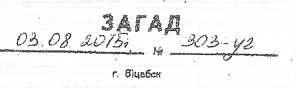 ЗАГАД
03.08.2015г. № 303-уг
г. Віцебск